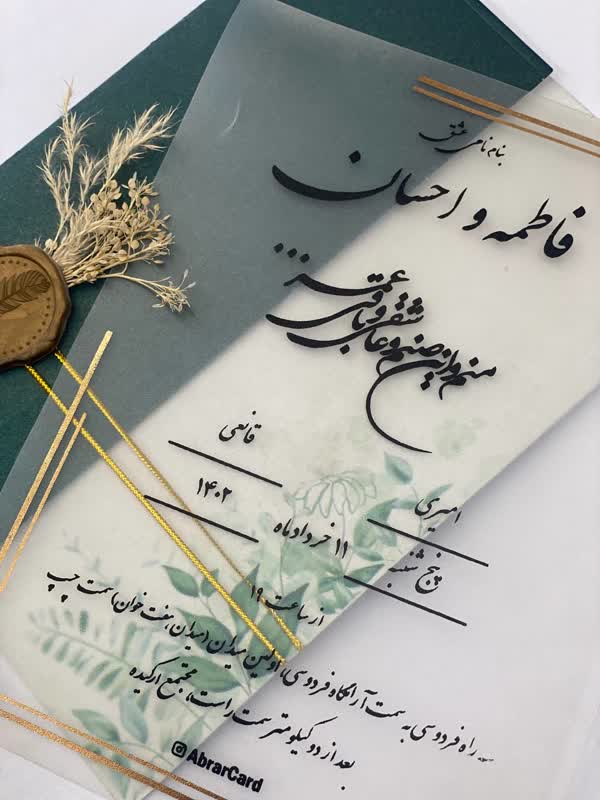 بنام نامی عشق
فاطمه و احسان
منم و این صنم و عاشقی و باقی عمر...
امیری
قانعی
پنج شنبه
۱۱ خرداد ماه
۱۴۰۲
از ساعت ۱۹
سه راه فردوسی به سمت آرامگاه فردوسی، اولین میدان (میدان هفت خوان) سمت چپ
بعد از دو کیلومتر سمت راست، مجتمع ارکیده
AbrarCard